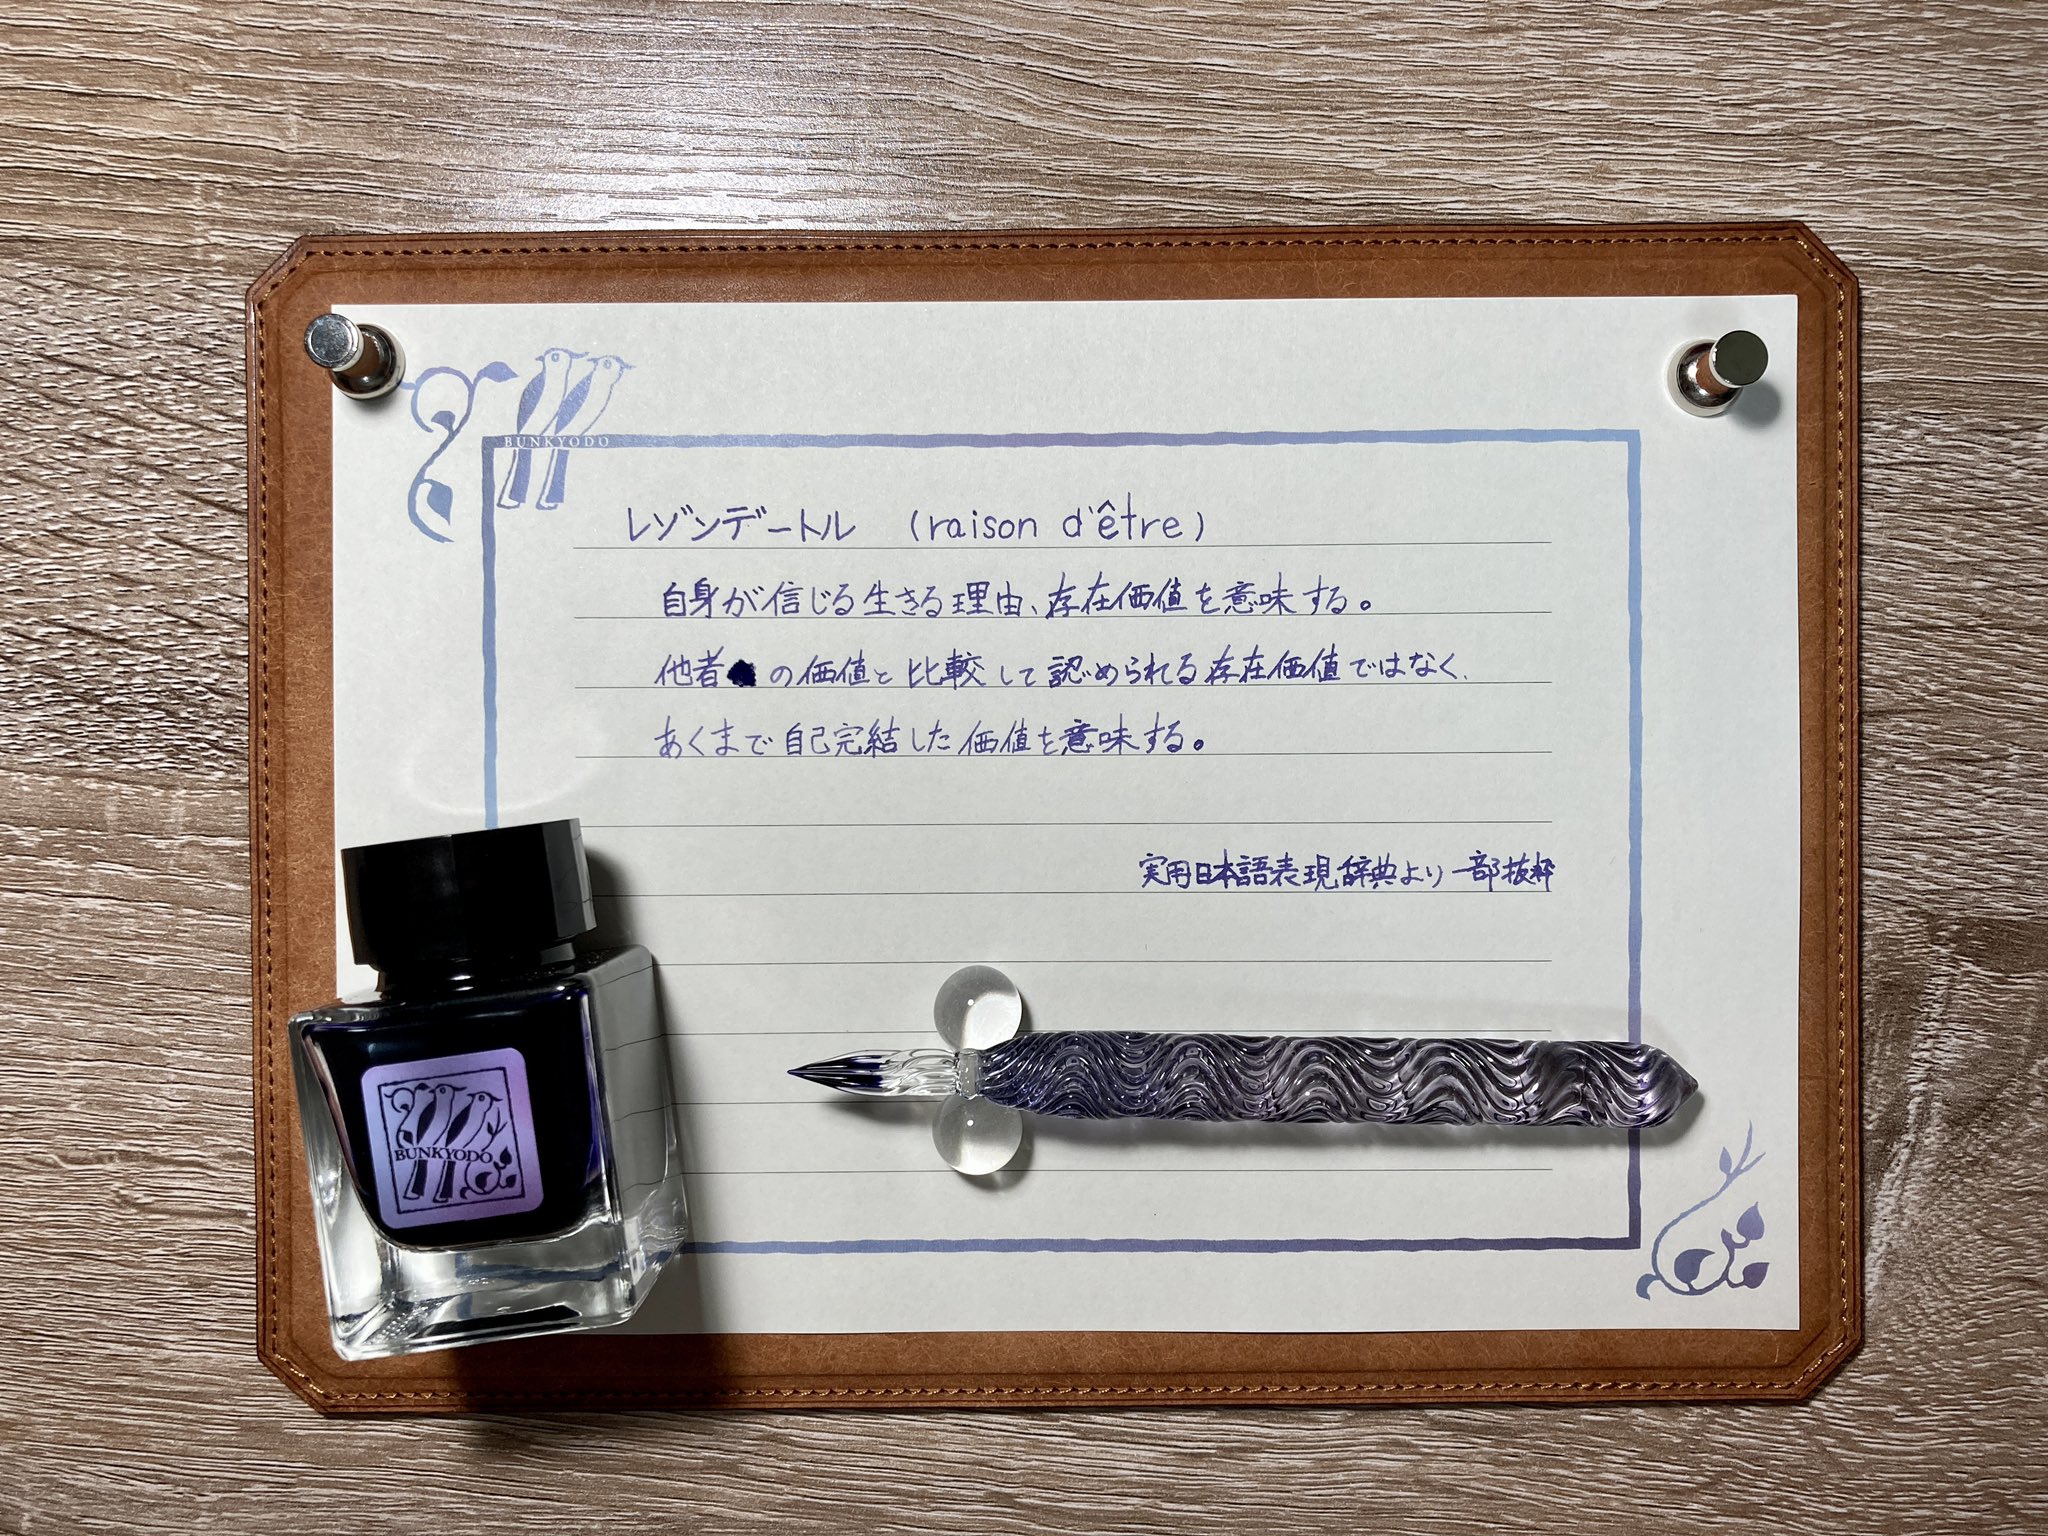 BUNKYODO
レゾンデートル (raison d'être)
自身が信じる生きる理由、存在価値を意味する。
他者の価値と比較して認められる存在価値ではなく、
あくまで自己完結した価値を意味する。
実用日本語表現辞典より一部抜粋
BUNKYODO